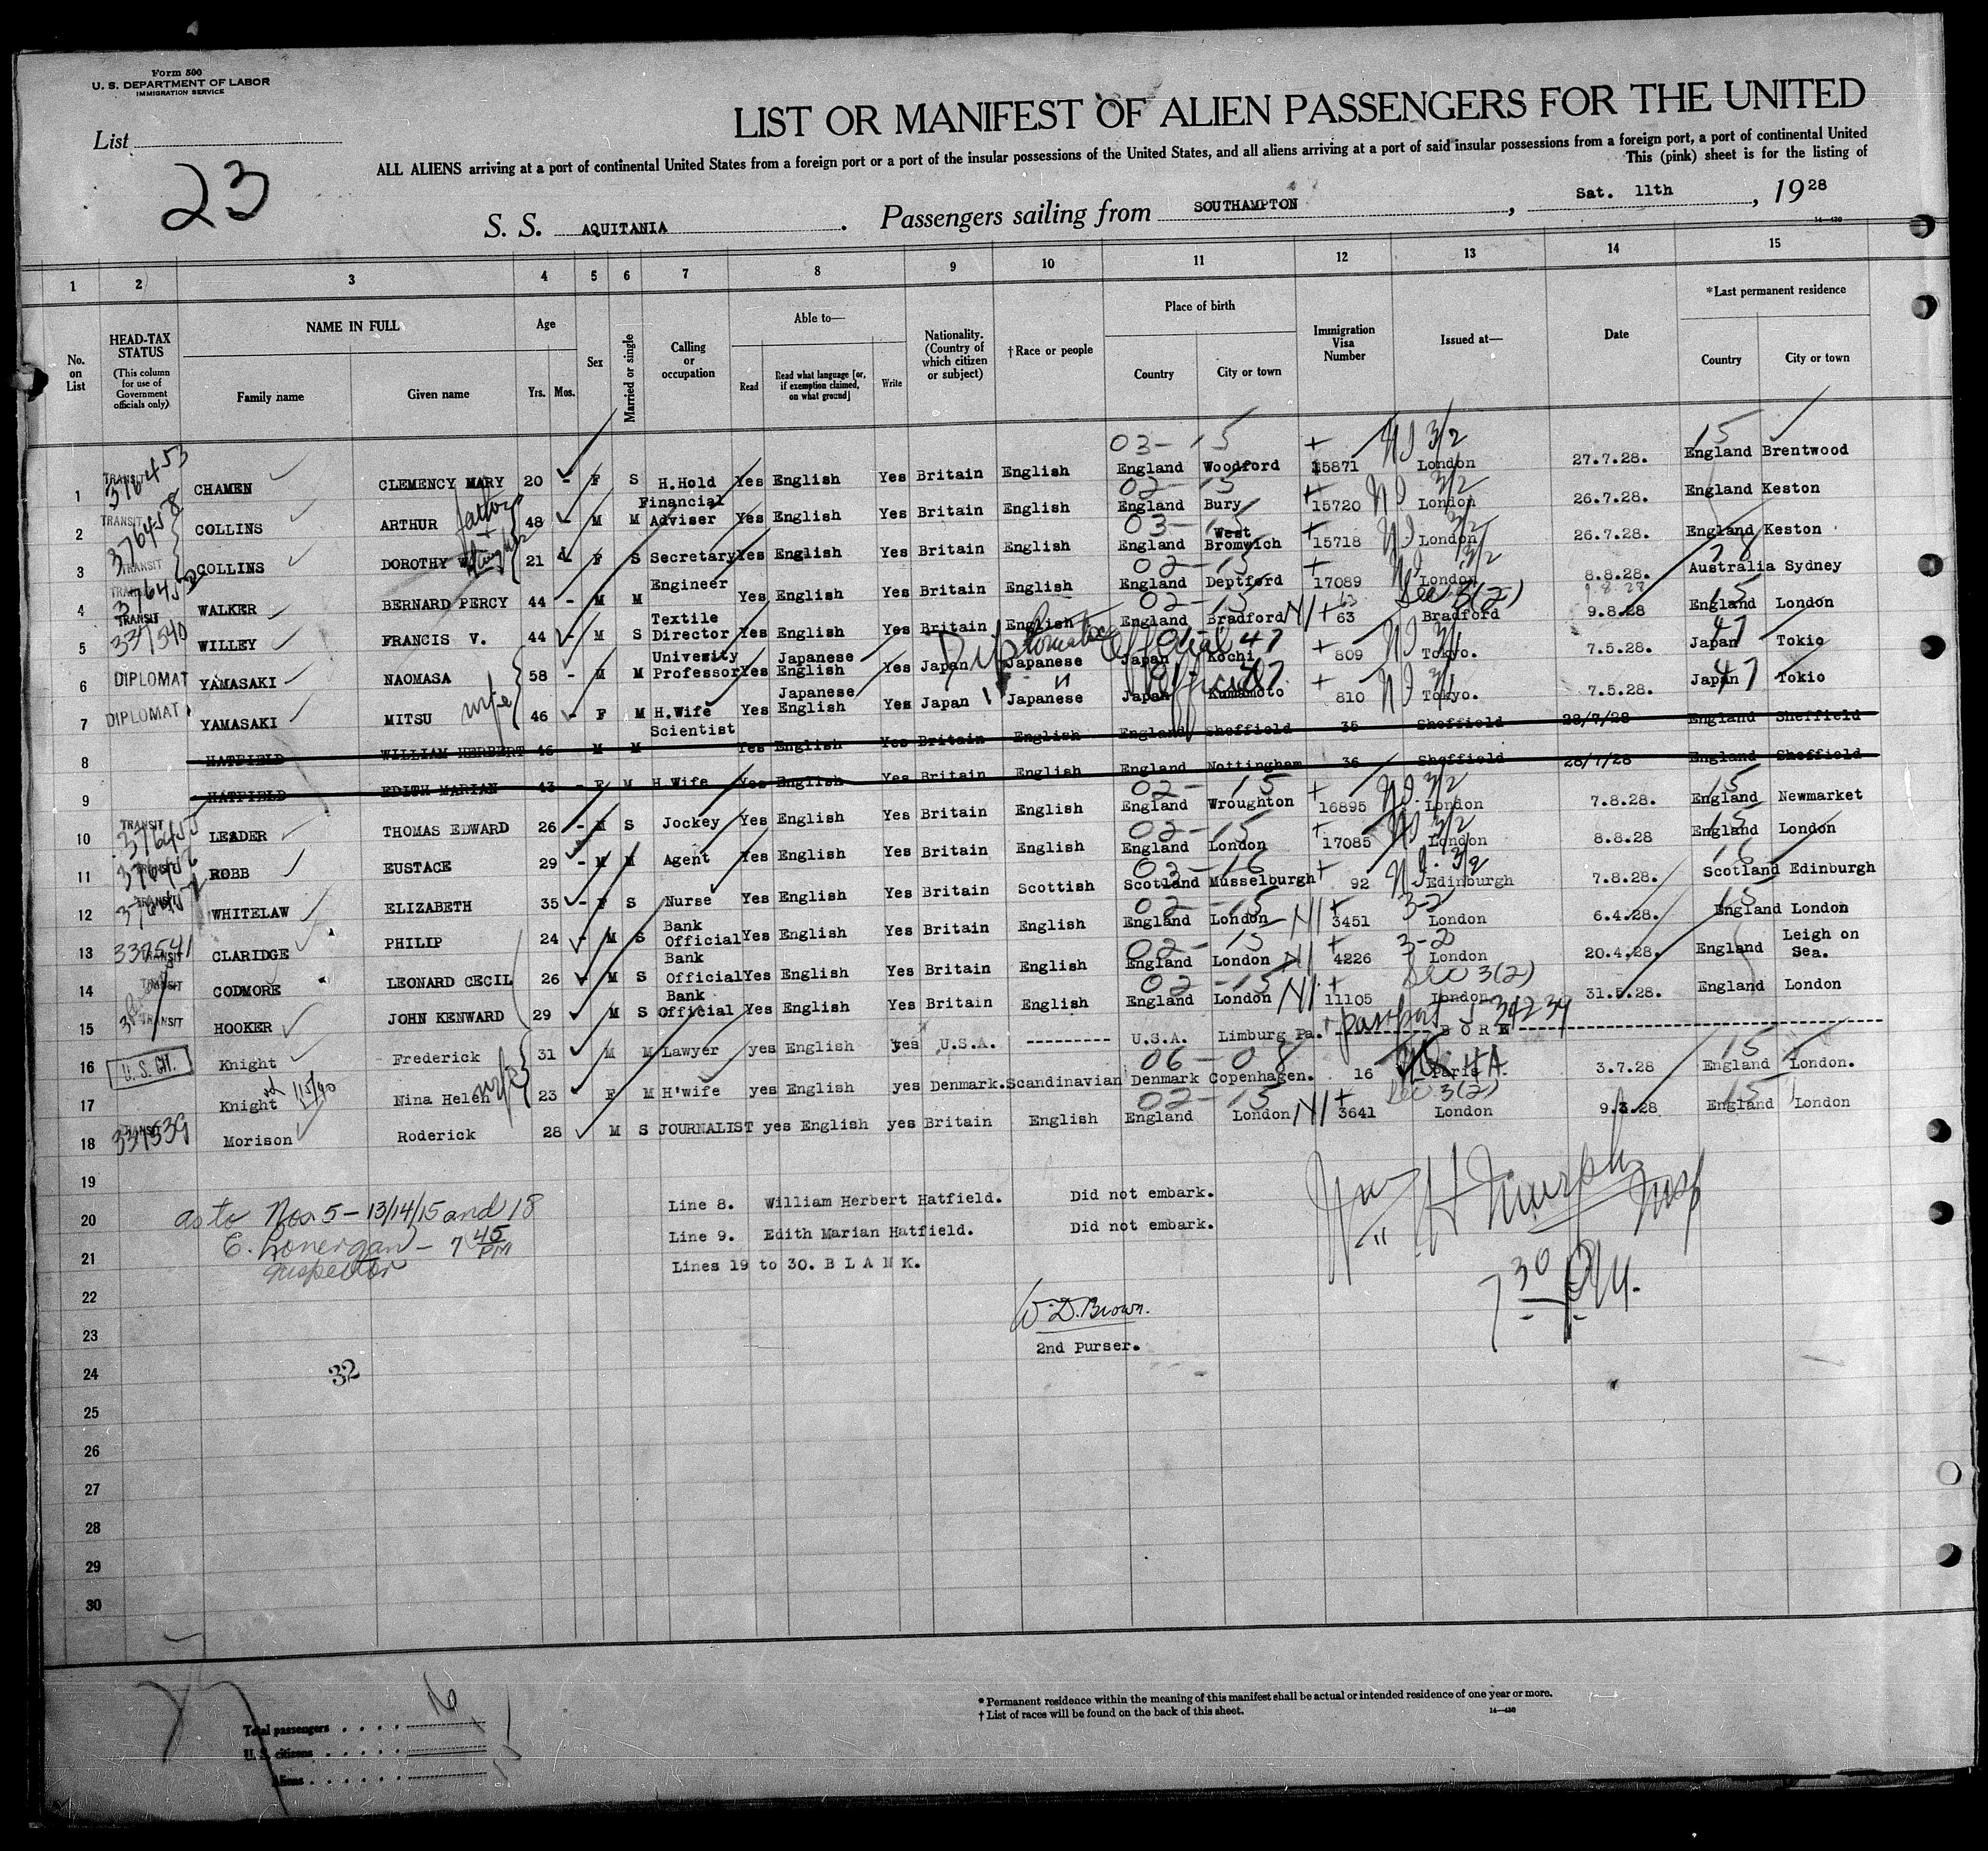 Form 500
U. S. DEPARTMENT OF LABOR
IMMIGRATION SERVICE
LIST OR MANIFEST OF ALIEN PASSENGERS FOR THE UNITED
List
23
ALL ALIENS arriving at a port of continental United States from a foreign port or a port of the insular possessions of the United States, and all aliens arriving at a port of said insular possessions from a foreign port, a port of continental United
This (pink) sheet is for the listing of
S. S. AQUITANIA. Passengers sailing from SOUTHAMPTON, Sat. 11th, 1928
14—430
1 2 3 4 5 6 7 8 9 10 11 12 13 14 15
No. on List
HEAD-TAX STATUS (This column for use of Government officials only)
NAME IN FULL
Family name Given name
Age Yrs. Mos.
Sex
Married or single
Calling or occupation
Able to—
Read Read what language [or, if exemption claimed, on what ground] Write
Nationality. (Country of which citizen or subject)
†Race or people
Place of birth
Country City or town
Immigration Visa Number
Issued at—
Date
*Last permanent residence
Country City or town
03-15 NI 3/2 15
1 TRANSIT 376453 CHAMEN CLEMENCY MARY 20 - F S H.Hold Yes English Yes Britain English England Woodford 15871 London 27.7.28. England Brentwood
02-15 NI 3/2
2 TRANSIT 376458 COLLINS ARTHUR father 48 - M M Financial Adviser Yes English Yes Britain English England Bury 15720 London 26.7.28. England Keston
03-15 NI 3/2
3 TRANSIT COLLINS DOROTHY daughter 21 F S Secretary Yes English Yes Britain English England West Bromwich 15718 London 26.7.28. England Keston
02-15 NI 3/2 78
4 WALKER BERNARD PERCY 44 - M M Engineer Yes English Yes Britain English England Deptford 17089 London 8.8.28. Australia Sydney
02-15 Sec 3(2) 15
5 TRANSIT 337540 WILLEY FRANCIS V. 44 - M S Textile Director Yes English Yes Britain English England Bradford N1 63 63 Bradford 9.8.28 England London
Diplomat official 47 NI 3/1 47
6 DIPLOMAT YAMASAKI NAOMASA 58 - M M Univesity Professor Yes Japanese English Yes Japan Japanese Japan Kochi 809 Tokyo. 7.5.28. Japan Tokio
" official 47 NI 3/1 47
7 DIPLOMAT YAMASAKI MITSU wife 46 - F M H.Wife Yes Japanese English Yes Japan Japanese Japan Kumamoto 810 Tokyo. 7.5.28. Japan Tokio
8 HATFIELD WILLIAM HERBERT 46 M M Scientist Yes English Yes Britain English England Sheffield 35 Sheffield 28/7/28 England Sheffield
9 HATFIELD EDITH MARIAN 43 - F M H.Wife Yes English Yes Britain English England Nottingham 36 Sheffield 28/7/28 England Sheffield
02-15 NI 3/2 15
10 TRANSIT 376455 LEADER THOMAS EDWARD 26 - M S Jockey Yes English Yes Britain English England Wroughton 16895 London 7.8.28. England Newmarket
02-15 NI 3/2 15
11 TRANSIT 376456 ROBB EUSTACE 29 - M M Agent Yes English Yes Britain English England London 17085 London 8.8.28 England London
03-16 NI 3/2 16
12 TRANSIT 376457 WHITELAW ELIZABETH 35 - F S Nurse Yes English Yes Britain Scottish Scotland Musselburgh 92 Edinburgh 7.8.28. Scotland Edinburgh
02-15 3-2 15
13 337541 TRANSIT CLARIDGE PHILIP 24 - M S Bank Official Yes English Yes Britain English England London N1 3451 London 6.4.28. England London
02-15 3-2
14 TRANSIT CODMORE LEONARD CECIL 26 - M S Bank Official Yes English Yes Britain English England London N1 4226 London 20.4.28. England Leigh on Sea.
02-15 Sec 3(2)
15 TRANSIT HOOKER JOHN KENWARD 29 M S Bank Official Yes English Yes Britain English England London N1 11105 London 31.5.28. England London
passport 34234
16 U. S. CIT. Knight Frederick 31 M M Lawyer yes English yes U.S.A. --------- U.S.A. Limburg Pa. ---------- BORN ----------
06-08 15
17 Knight Nina Helen wife 23 F M H'wife yes English yes Denmark. Scandinavian Denmark Copenhagen. 16 Paris 3.7.28 England London.
02-15 Sec 3(2) 15
18 TRANSIT 337539 Morison Roderick 28 M S JOURNALIST yes English yes Britain English England London N1 3641 London 9.3.28 England London
19
20 as to Nos 5-13/14/15 and 18 Line 8. William Herbert Hatfield. Did not embark.
E. Lonergan - 7 45 PM Line 9. Edith Marian Hatfield. Did not embark.
21 Inspector Lines 19 to 30. B L A N K.
Wm H Murphy Insp
7 30 P.M.
22
W. D. Brown.
23
2nd Purser.
24 32
25
26
27
28
29
30
Total passengers . . . . 16
U. S. citizens . . . . .
Aliens . . . . . .
* Permanent residence within the meaning of this manifest shall be actual or intended residence of one year or more.
† List of races will be found on the back of this sheet.
14—430